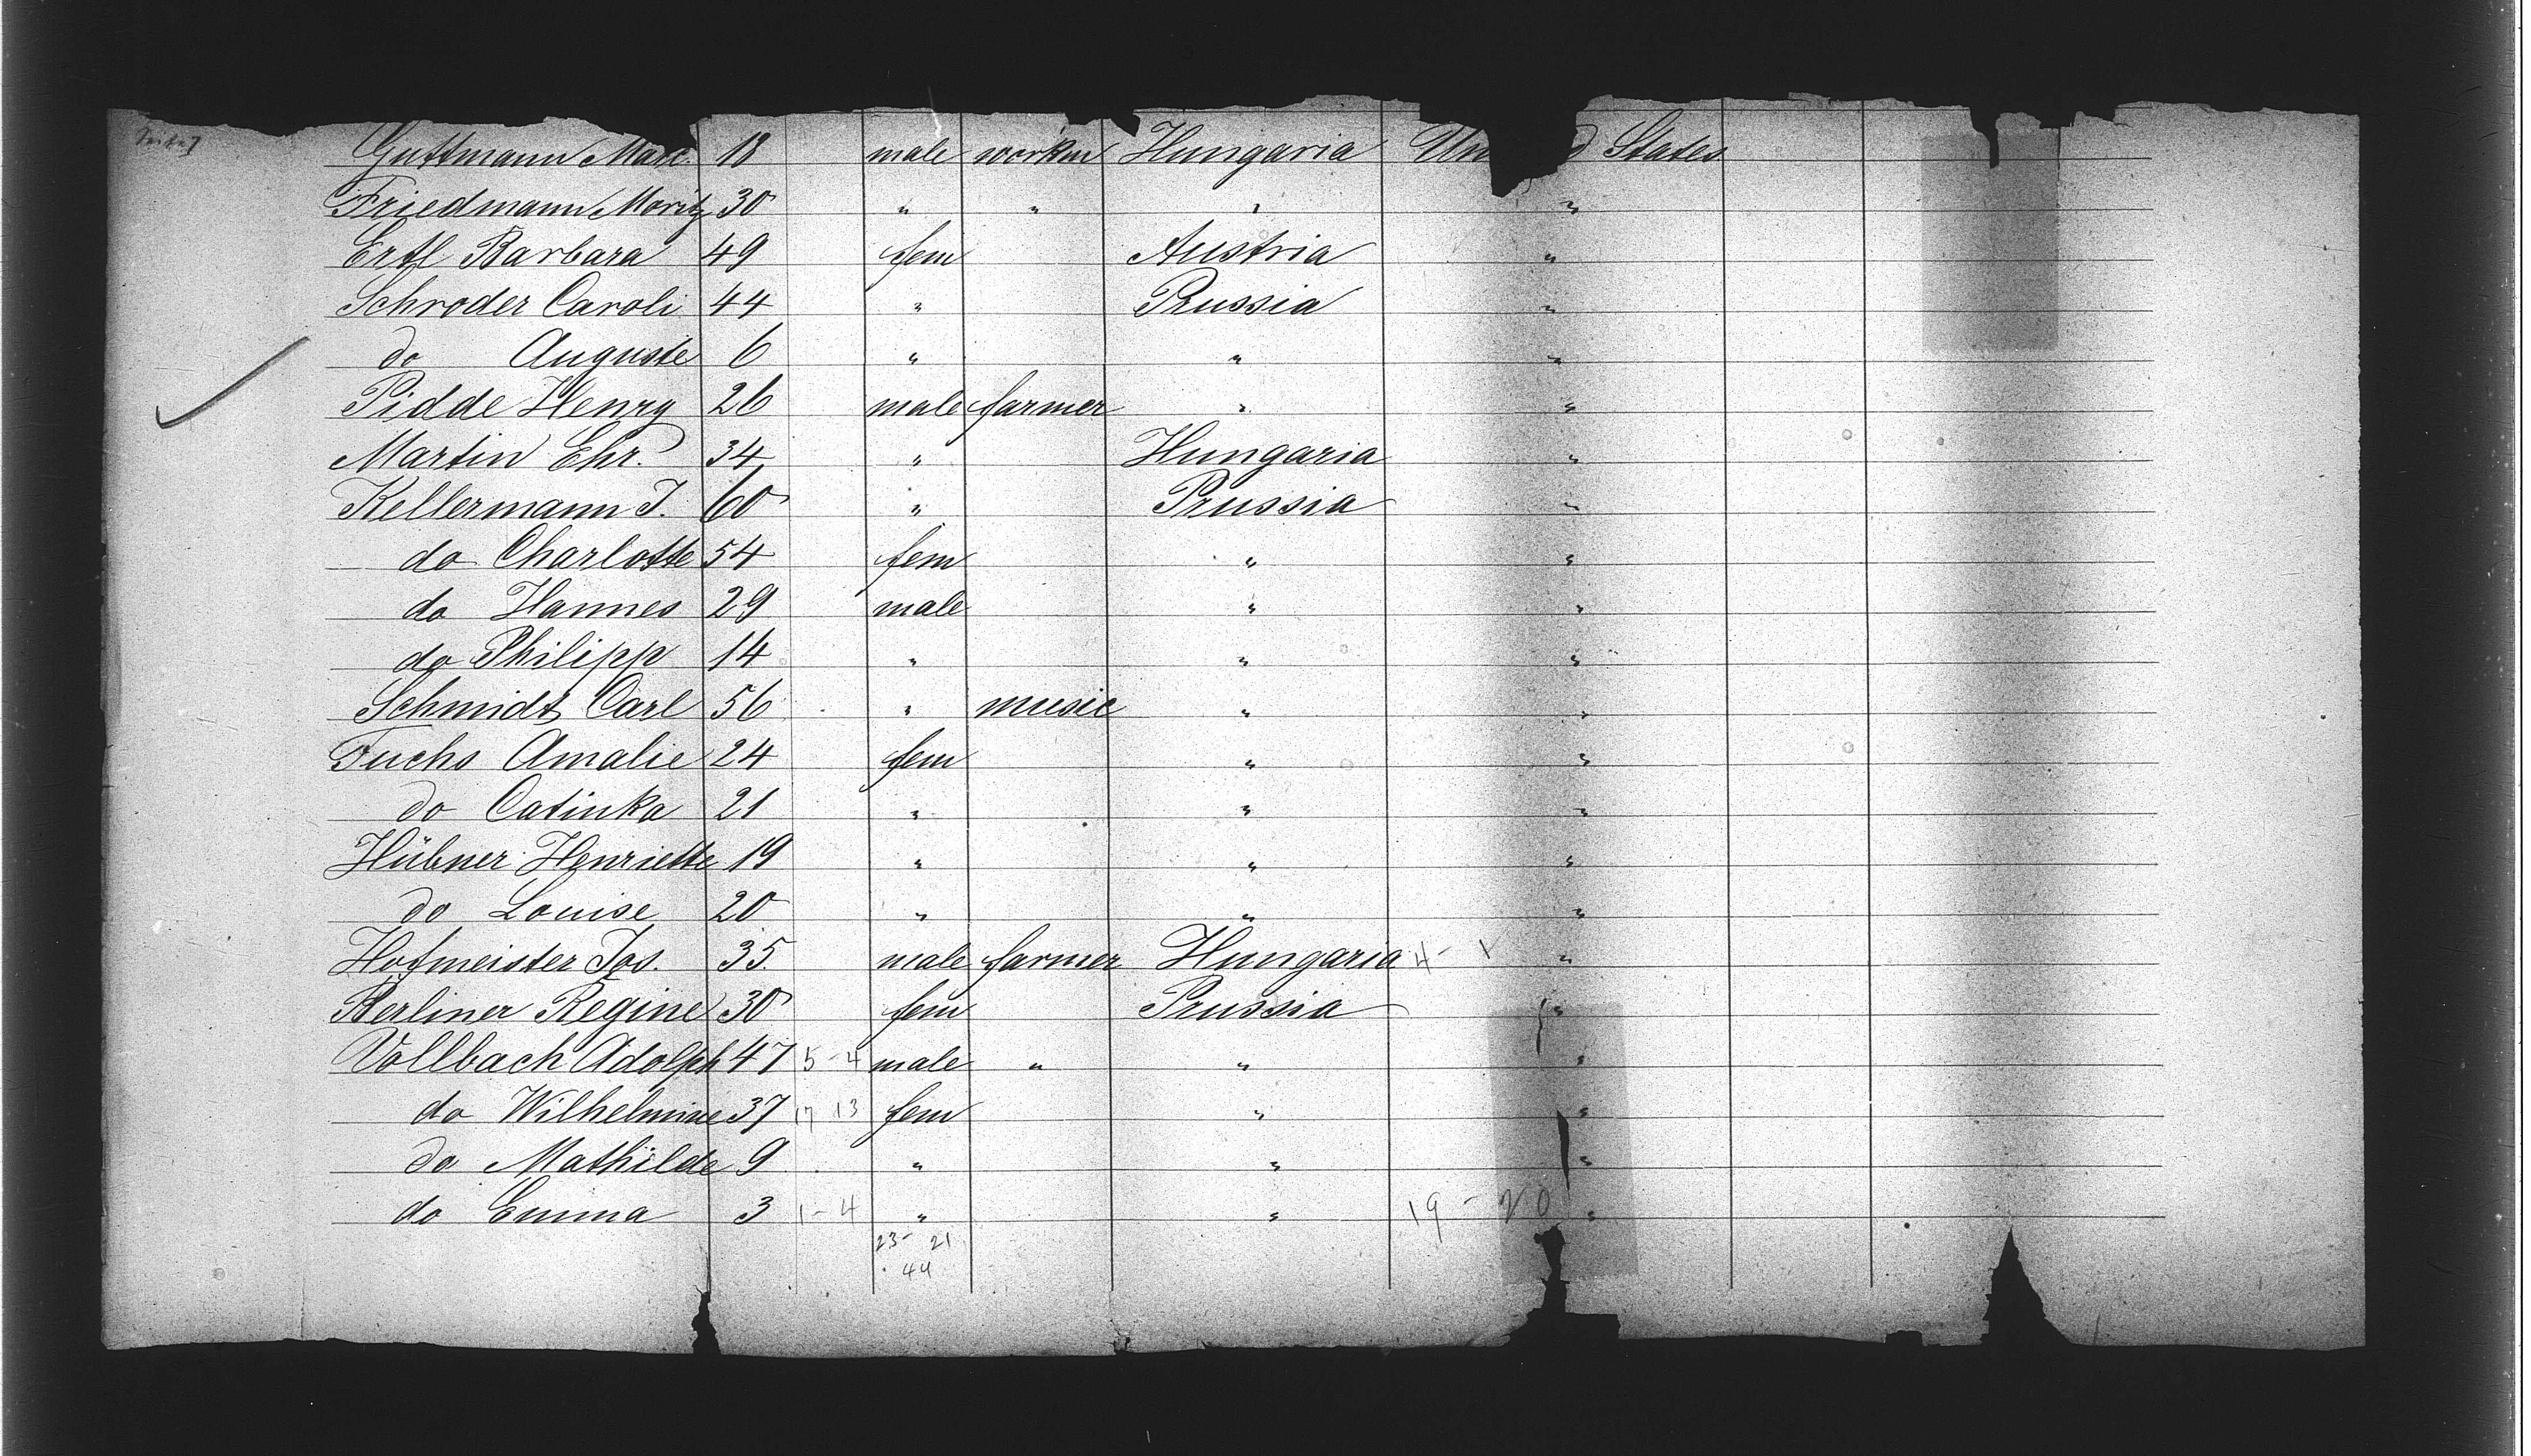 Guttmann Max. 18 male workm Hungaria Un d States
Friedmann Moritz 30 " " " "
Ertl Barbara 49 fem Austria "
Schroder Caroli 44 " Prussia "
do Auguste 6 " " "
Pidde Henry 26 male farmer " "
Martin Chr. 34 " Hungaria "
Kellermann J. 60 " Prussia "
do Charlotte 54 fem " "
do Hannes 29 male " "
do Philipp 14 " " "
Schmidt Carl 56 " music " "
Fuchs Amalie 24 fem " "
do Catinka 21 " " "
Hübner Henriette 19 " " "
do Louise 20 " " "
Hofmeister Jos. 35. male farmer Hungaria 4 - 1 "
Berliner Regine 30 fem Prussia "
Vollbach Adolph 47 5 - 4 male " " "
do Wilhelmine 37 17 13 fem " "
do Mathilde 9 " " "
do Emma 3 1 - 4 " " 19 - 20 "
23 - 21
44